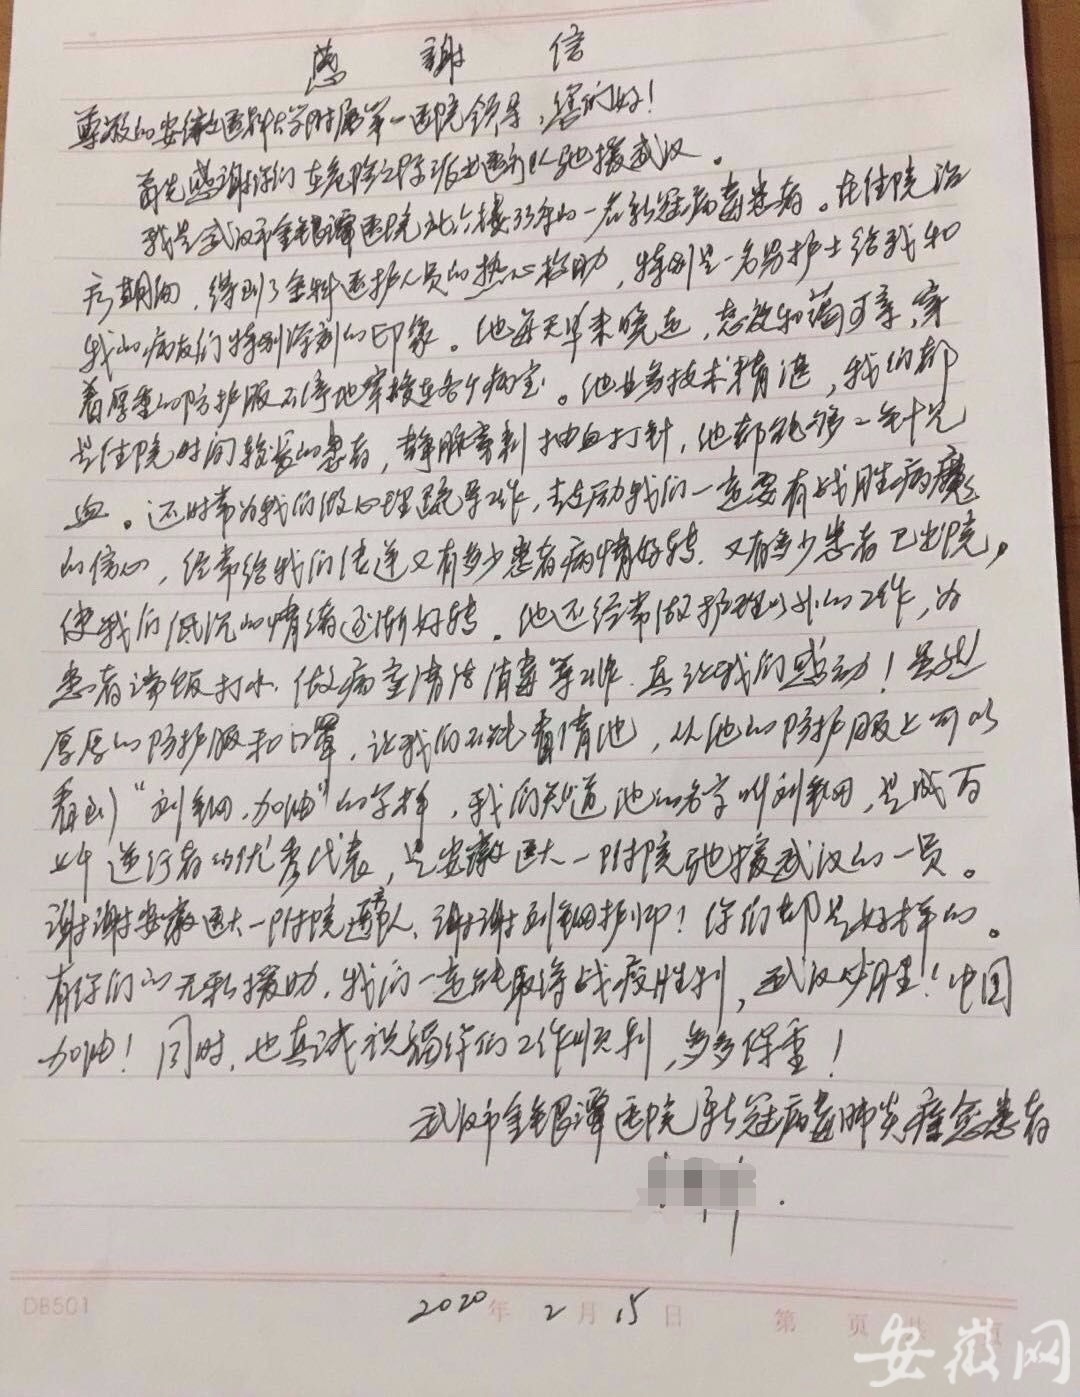 感谢信
尊敬的安徽医科大学附属第一医院领导,您们好!
首先感谢你们在危险之际派出医疗队驰援武汉。
我是武汉市金银潭医院北六楼33床的一名新冠病毒患者。在住院治
疗期间,得到了全科医护人员的热心救助,特别是一名男护士给我和
我的病友们特别深刻的印象。他每天早来晚走,态度和蔼可亲,穿
着厚重的防护服不停地穿梭在各个病室。他业务技术精湛,我们都
是住院时间较长的患者,静脉穿刺抽血打针,他都能够一针见
血。还时常为我们做心理疏导工作,鼓励我们一定要有战胜病魔
的信心,经常给我们传递又有多少患者病情好转,又有多少患者已出院,
使我们低沉的情绪逐渐好转。他还经常做护理以外的工作,为
患者端饭打水,做病室清洁消毒等工作,真让我们感动!虽然
厚厚的防护服和口罩,让我们不能看清他,从他的防护服上可以
看到“刘 ,加油”的字样,我们知道他的名字叫刘 ,是成百
上千逆行者的优秀代表,是安徽医大一附院驰援武汉的一员。
谢谢安徽医大一附院医疗队,谢谢刘 护师!你们都是好样的。
有你们的无私援助,我们一定能取得战疫胜利,武汉必胜!中国
加油!同时,也真诚祝福你们工作顺利,多多保重!
武汉市金银潭医院新冠病毒肺炎痊愈患者
DB501
2020年2月15日 第 页 共 页
安徽网